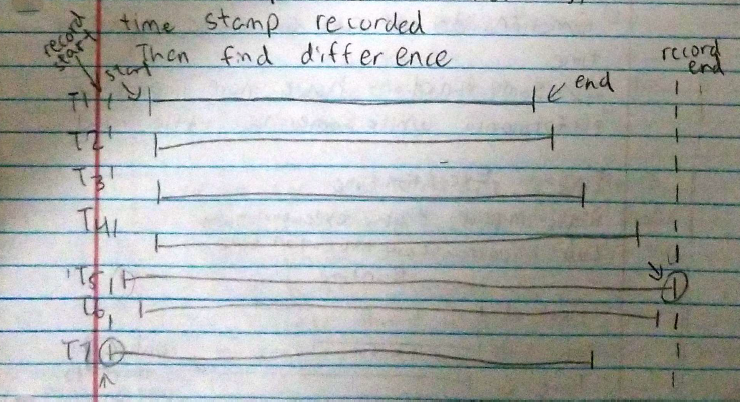 time stamp recorded
Then find difference
record start
record end
start
end
T1
T2
T3
T4
T5
T6
T7